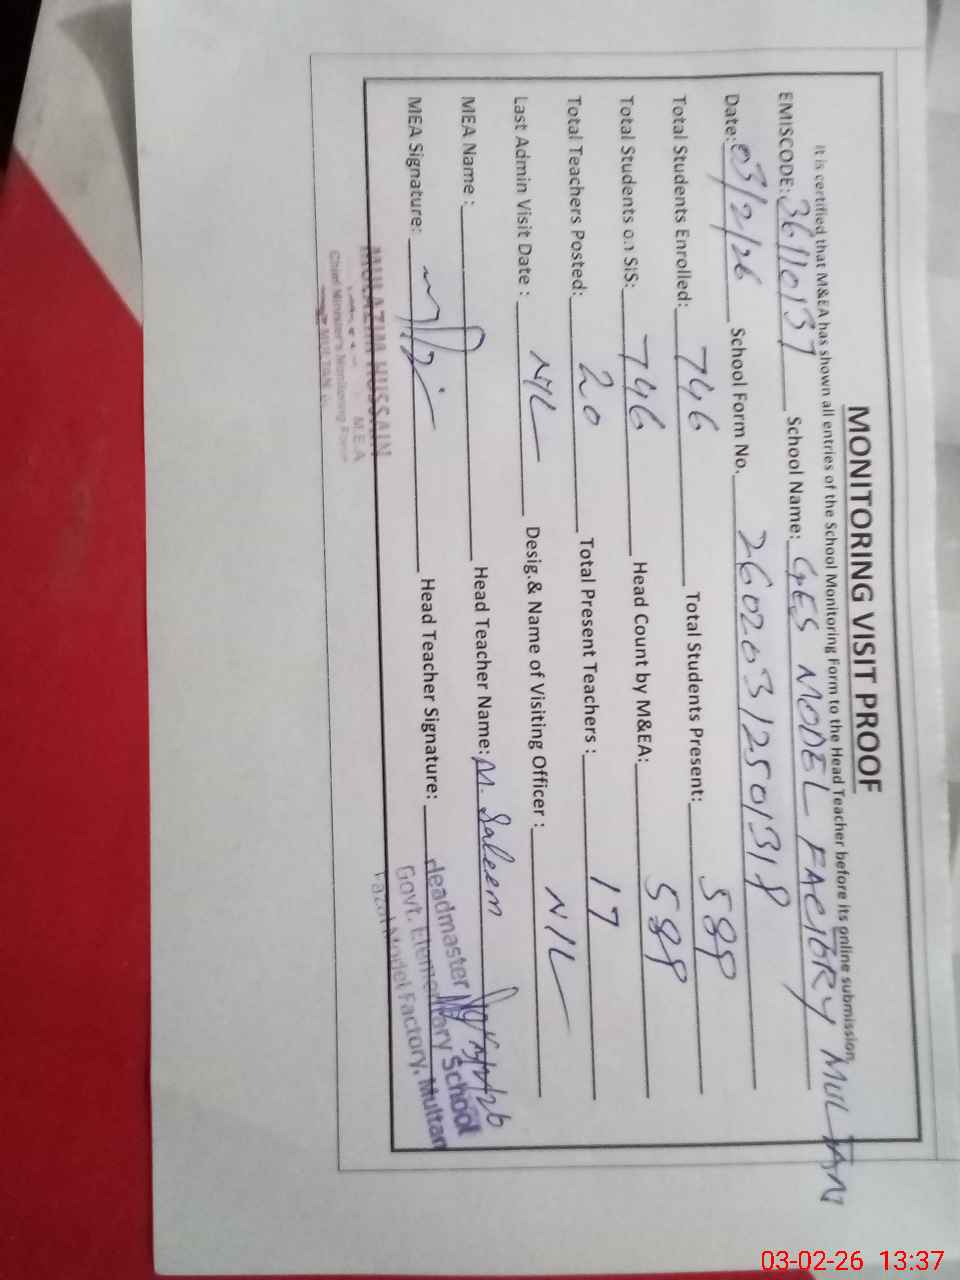 MONITORING VISIT PROOF
It is certified that M&EA has shown all entries of the School Monitoring Form to the Head Teacher before its online submission
EMISCODE: 36110137 School Name: GES MODEL FACTORY MULTAN
Date: 03/2/26 School Form No. 26020312501318
Total Students Enrolled: 746 Total Students Present: 589
Total Students on SIS: 746 Head Count by M&EA: 589
Total Teachers Posted: 20 Total Present Teachers : 17
Last Admin Visit Date : NIL Desig.& Name of Visiting Officer : NIL
MEA Name : Head Teacher Name: M. Saleem
MEA Signature: Head Teacher Signature:
MULAZIM HUSSAIN
M.E.A
Chief Minister's Monitoring Force
MULTAN
Headmaster
Govt. Elementary School
Fazal Model Factory, Multan
03-02-26 13:37